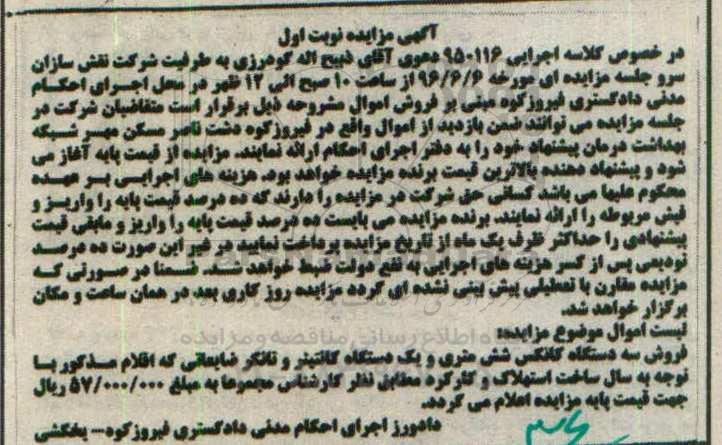 آگهی مزایده نوبت اول
در خصوص کلاسه اجرایی 116-95 دعوی آقای ذبیح اله گودرزی به طرفیت شرکت نقش سازان
سرو جلسه مزایده ای مورخه 96/6/6 از ساعت 10 صبح الی 12 ظهر در محل اجرای احکام
مدنی دادگستری فیروزکوه مبنی بر فروش اموال مشروحه ذیل برقرار است متقاضیان شرکت در
جلسه مزایده می توانند ضمن بازدید از اموال واقع در فیروزکوه دشت ناصر مسکن مهر شبکه
بهداشت درمان پیشنهاد خود را به دفتر اجرای احکام ارائه نمایند. مزایده از قیمت پایه آغاز می
شود و پیشنهاد دهنده بالاترین قیمت برنده مزایده خواهد بود. هزینه های اجرایی بر عهده
محکوم علیها می باشد کسانی حق شرکت در مزایده را دارند که ده درصد قیمت پایه را واریز و
فیش مربوطه را ارائه نمایند. برنده مزایده می بایست ده درصد قیمت پایه را واریز و مابقی قیمت
پیشنهادی را حداکثر ظرف یک ماه از تاریخ مزایده پرداخت نمایید در غیر این صورت ده درصد
تودیعی پس از کسر هزینه های اجرایی به نفع دولت ضبط خواهد شد. ضمنا در صورتی که
مزایده مقارن با تعطیلی پیش بینی نشده ای گردد مزایده روز کاری بعد در همان ساعت و مکان
برگزار خواهد شد.
لیست اموال موضوع مزایده:
فروش سه دستگاه کانکس شش متری و یک دستگاه کانتینر و تانکر ضایعاتی که اقلام مذکور با
توجه به سال ساخت استهلاک و کارکرد مطابق نظر کارشناس مجموعا به مبلغ 57/000/000 ریال
جهت قیمت پایه مزایده اعلام می گردد.
دادورز اجرای احکام مدنی دادگستری فیروزکوه... بخششی